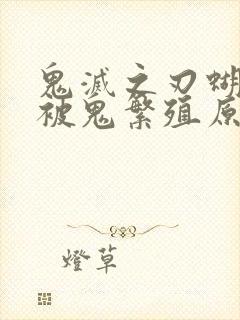 鬼滅之刃蝴
被鬼繁殖原
燈草